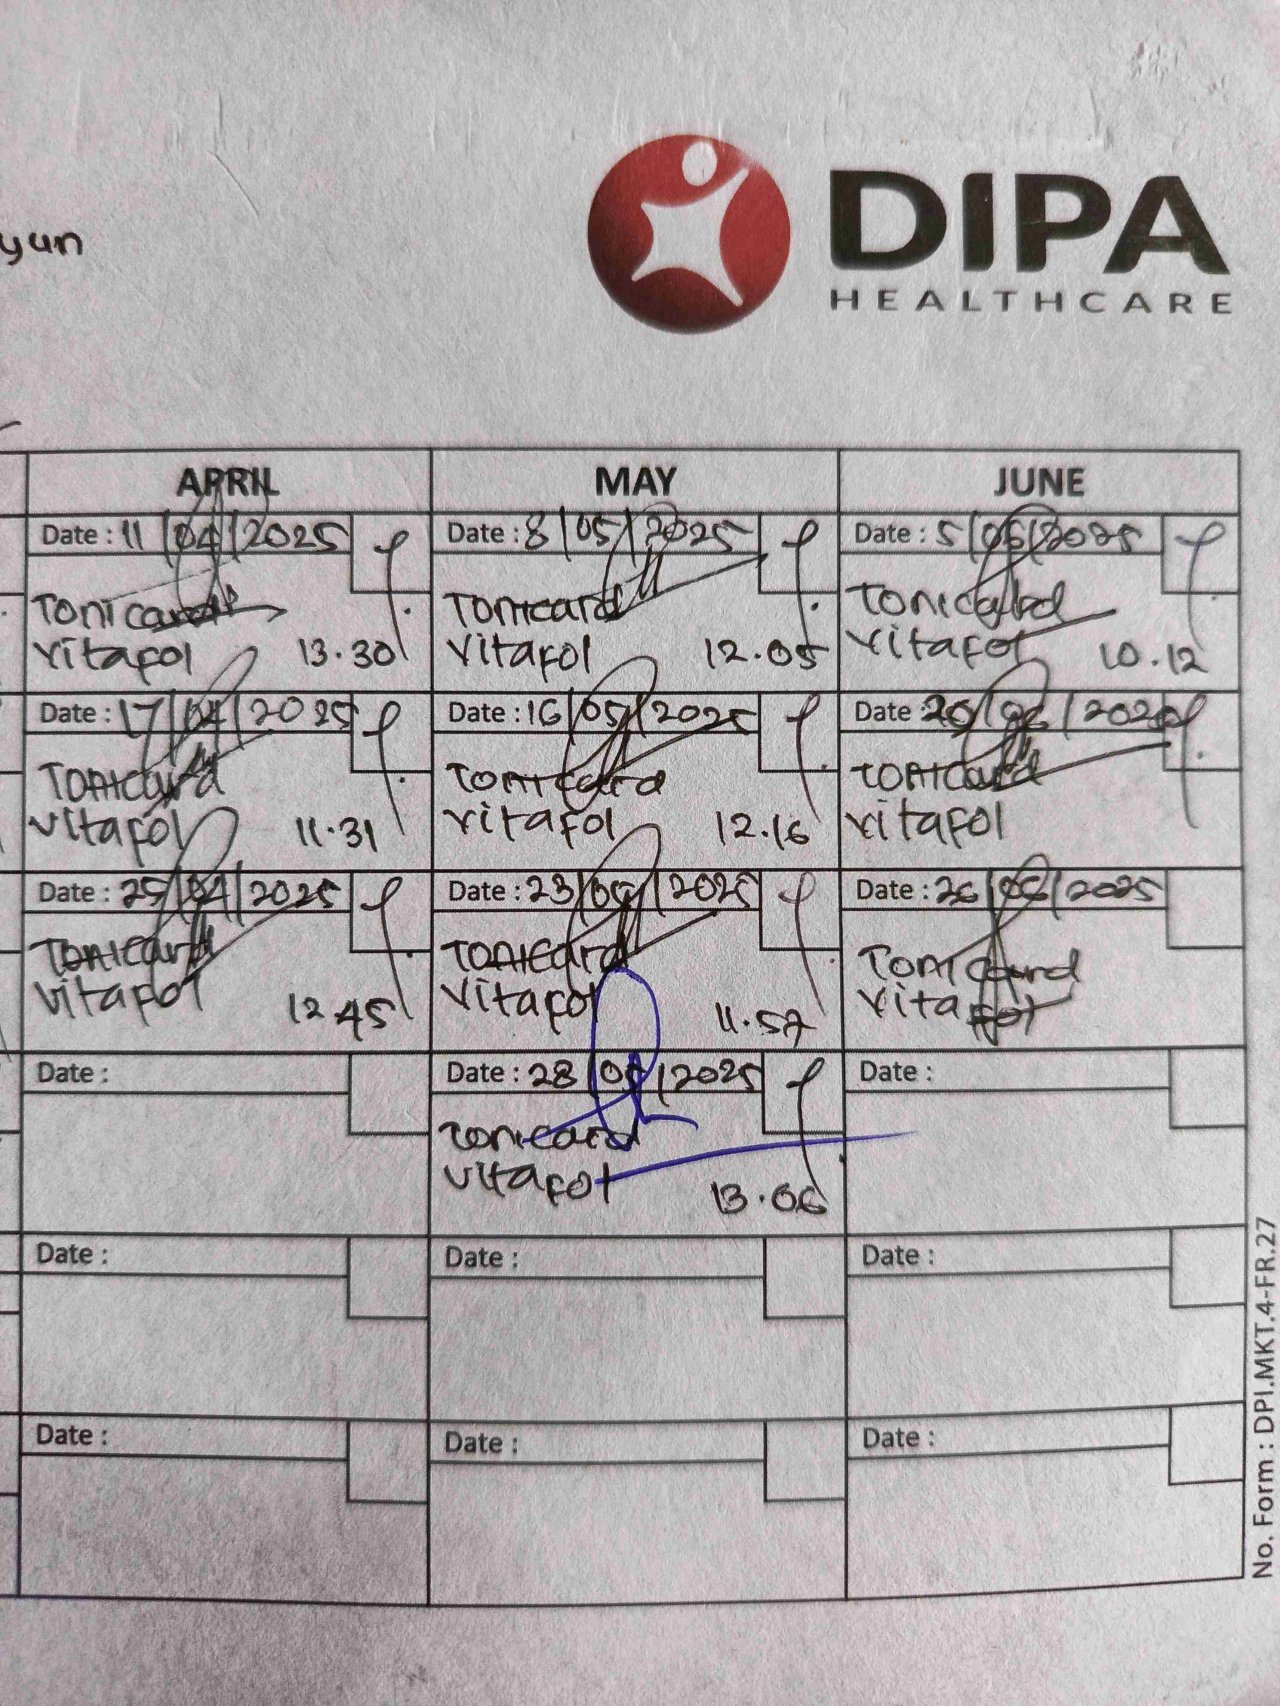 yun
DIPA
HEALTHCARE
APRIL MAY JUNE
Date : 11/04/2025 Date : 8/05/2025 Date : 5/06/2025
Tonicard Tonicard Tonicard
Vitafol 13.30 Vitafol 12.05 Vitafol 10.12
Date : 17/04/2025 Date : 16/05/2025 Date :
Tonicard Tonicard Tonicard
Vitafol 11.31 Vitafol 12.16 Vitafol
Date : 25/04/2025 Date : 23/05/2025 Date : 26/06/2025
Tonicard Tonicard Tonicard
Vitafol 12.45 Vitafol 11.57 Vitafol
Date : Date : 28/05/2025 Date :
Tonicard
Vitafol 13.06
Date : Date : Date :
Date : Date : Date :
No. Form : DPI.MKT.4-FR.27